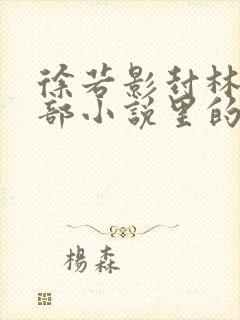 徐若影封林
部小说里的
杨森